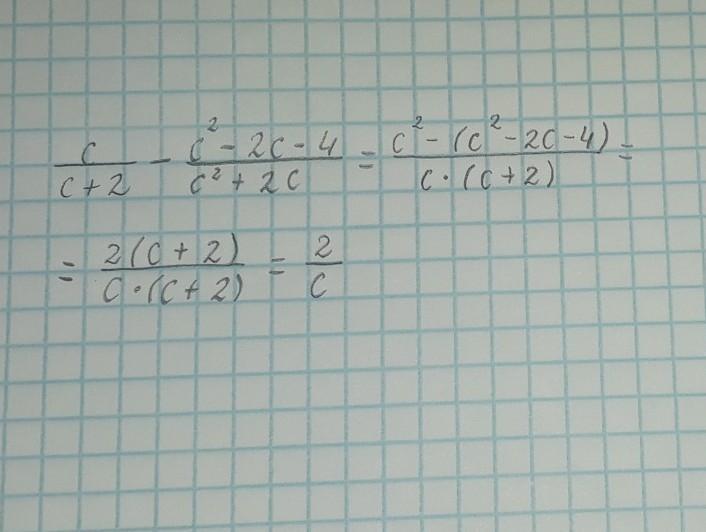 c/(c+2) - (c² - 2c - 4)/(c² + 2c) = (c² - (c² - 2c - 4))/(c · (c + 2)) =
= 2(c + 2)/(c · (c + 2)) = 2/c